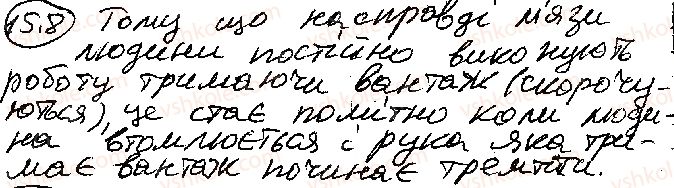 15.8 Тому що насправді м'язи
людини постійно виконують
роботу тримаючи вантаж (скорочу-
ються), це стає помітно коли люди-
на втомлюється і рука яка три-
має вантаж починає тремтіти.